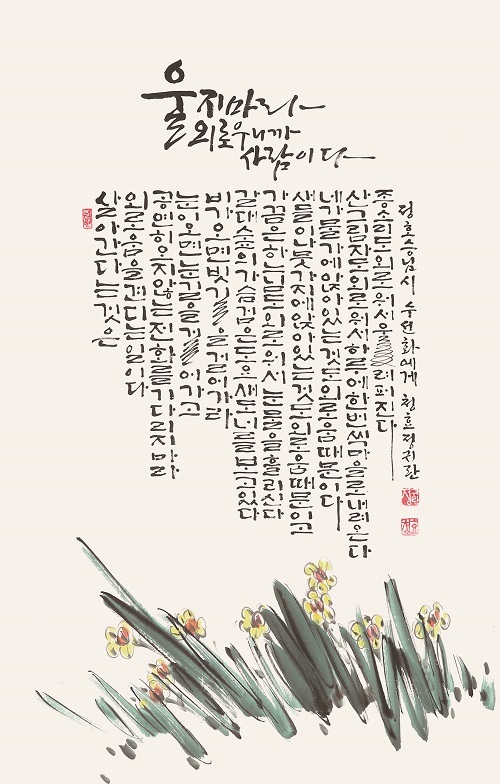 울지마라
외로우니까
사람이다
살아간다는것은
외로움을견디는일이다
공연히오지않는전화를기다리지말라
눈이오면눈길을걸어가고
비가오면빗길을걸어가라
갈대숲의가슴검은도요새도너를보고있다
가끔은하느님도외로워서눈물을흘리신다
새들이나뭇가지에앉아있는것도외로움때문이고
네가물가에앉아있는것도외로움때문이다
산그림자도외로워서하루에한번씩마을로내려온다
종소리도외로워서울려퍼진다
정호승님시 수선화에게